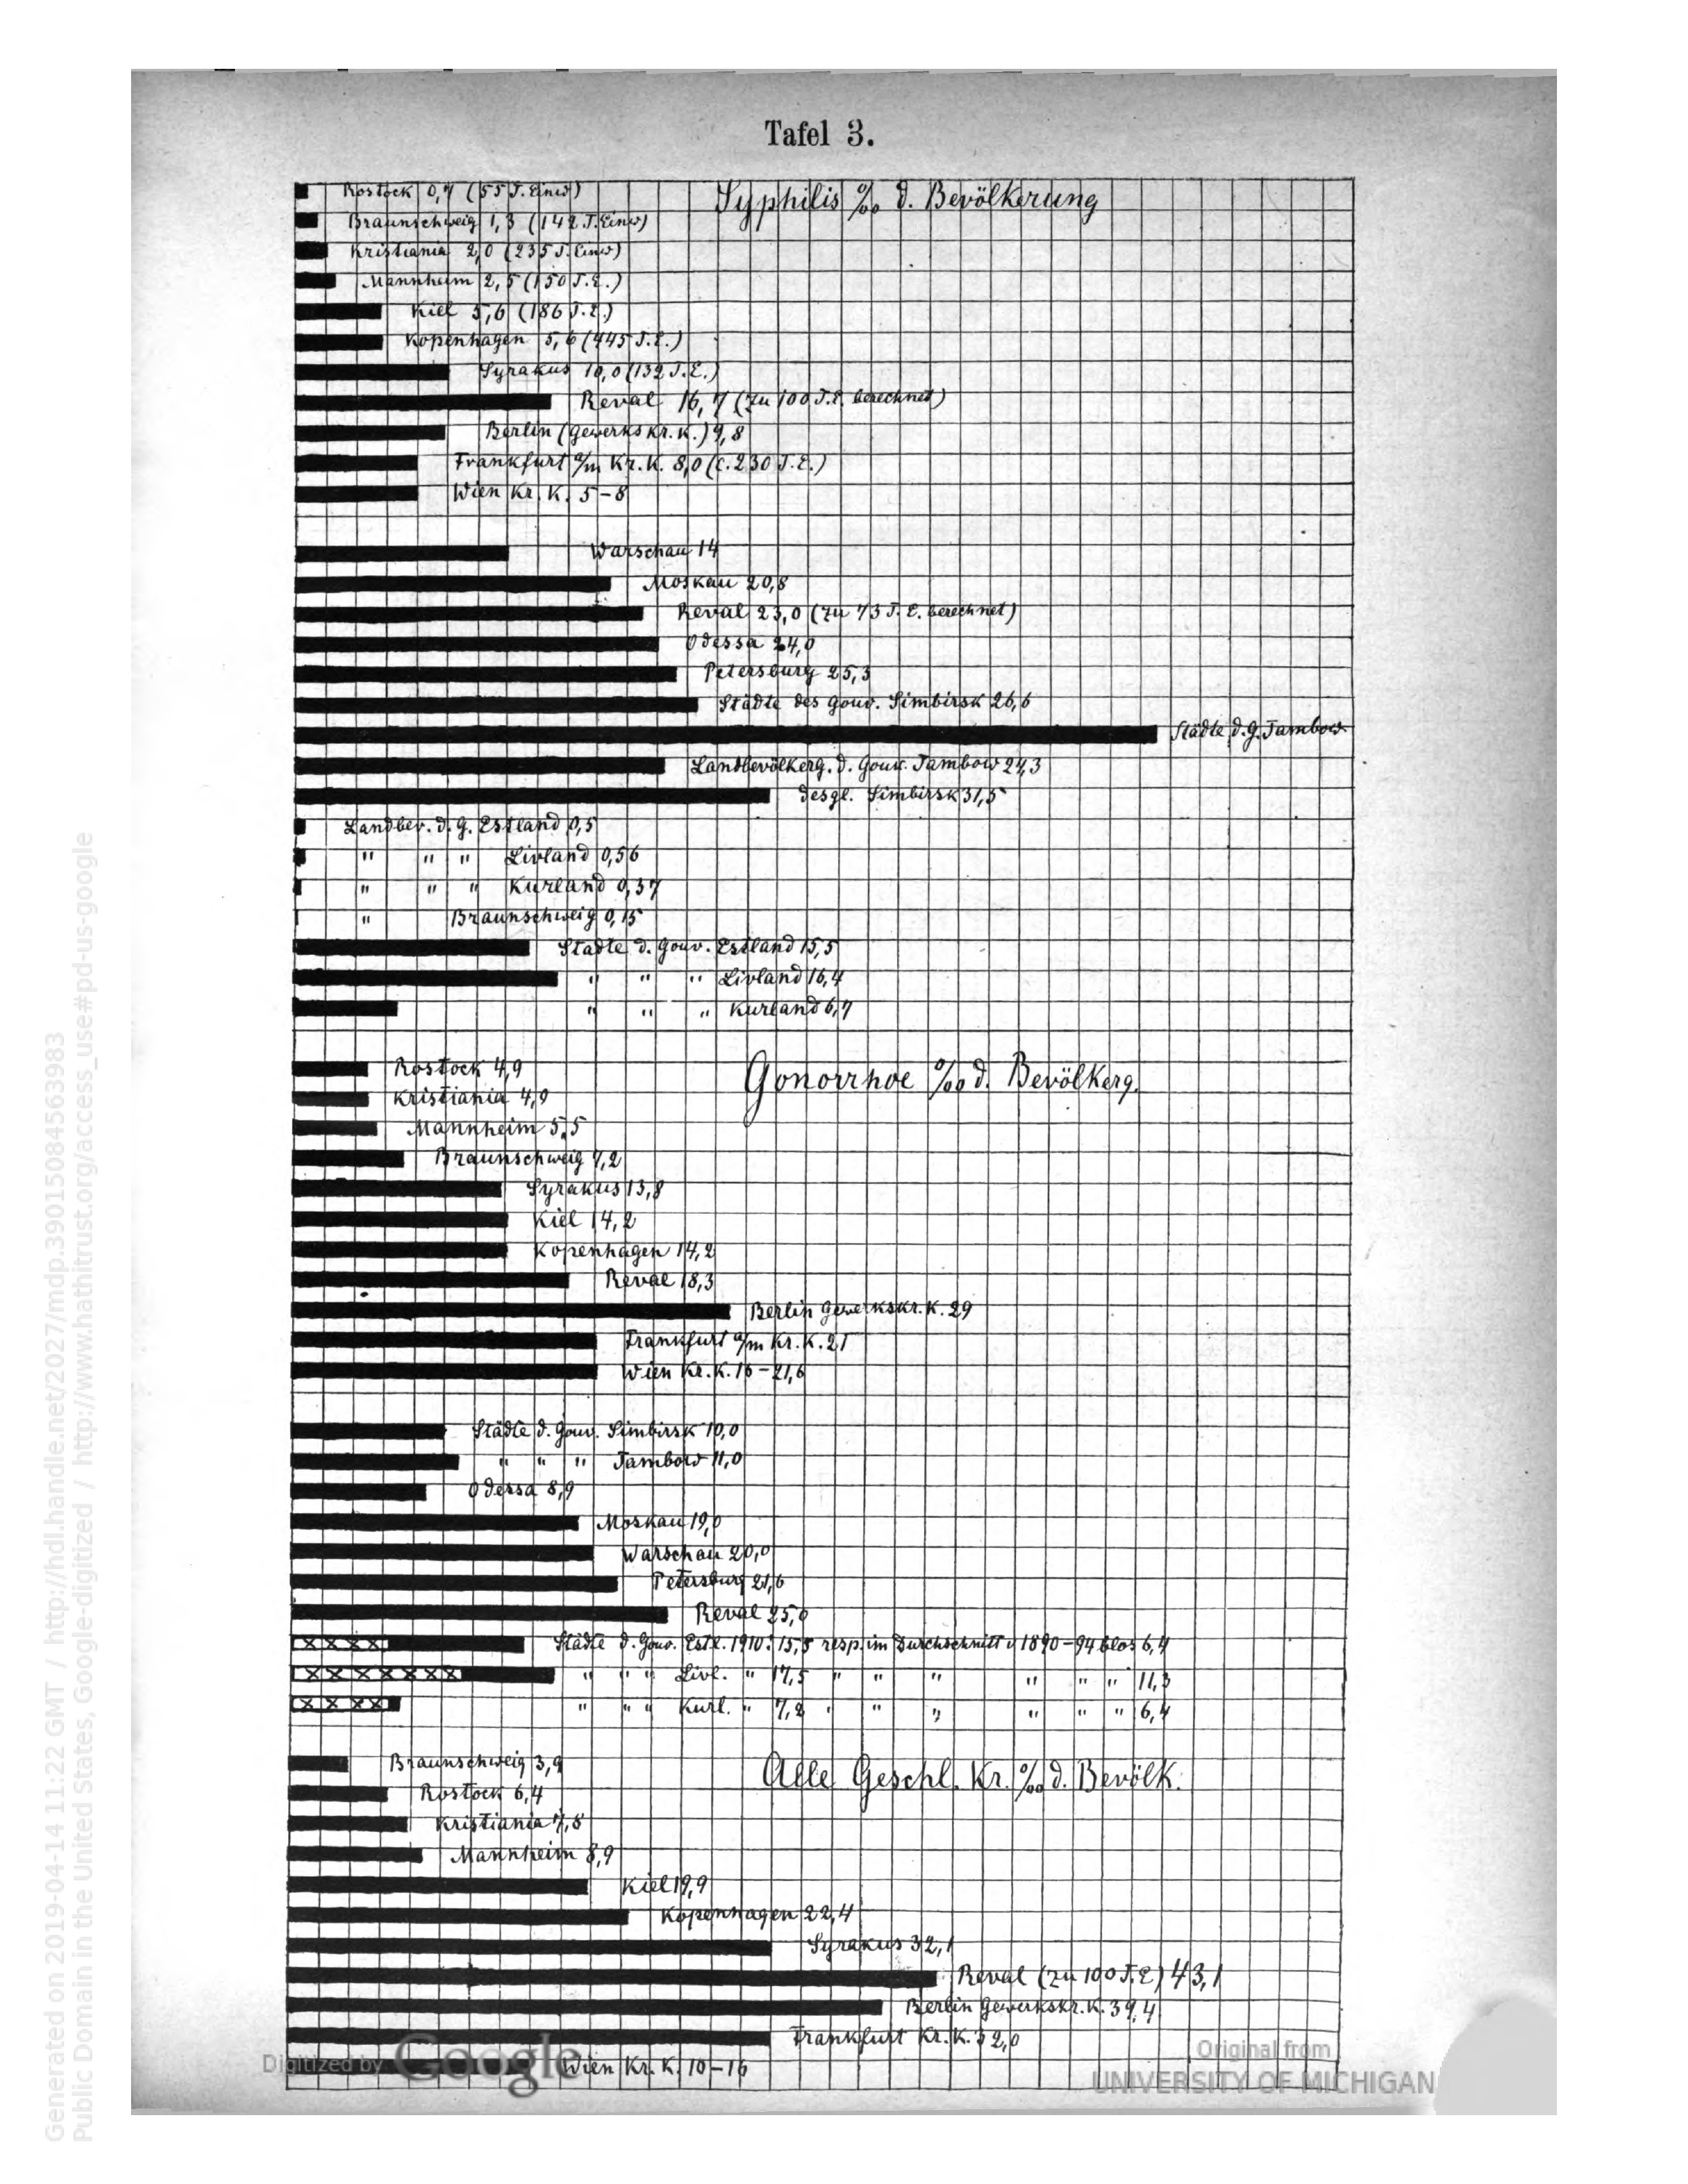 Tafel 3.
Syphilis ‰ d. Bevölkerung
Rostock 0,7 (55 T. Einw)
Braunschweig 1,3 (142 T. Einw)
Kristiania 2,0 (235 T. Einw)
Mannheim 2,5 (150 T. E.)
Kiel 5,6 (186 T. E.)
Kopenhagen 5,6 (445 T. E.)
Syrakus 10,0 (132 T. E.)
Reval 16,7 (zu 100 T. E. berechnet)
Berlin (Gewerkskr. K.) 9,8
Frankfurt a/m Kr. K. 8,0 (c. 230 T. E.)
Wien Kr. K. 5–8
Warschau 14
Moskau 20,8
Reval 23,0 (zu 73 T. E. berechnet)
Odessa 24,0
Petersburg 25,3
Städte des Gouv. Simbirsk 26,6
Städte d. G. Tambow
Landbevölkerg. d. Gouv. Tambow 24,3
desgl. Simbirsk 31,5
Landbev. d. G. Estland 0,5
" " " Livland 0,56
" " " Kurland 0,37
" Braunschweig 0,15
Städte d. Gouv. Estland 15,5
" " " Livland 16,4
" " " Kurland 6,7
Gonorrhoe ‰ d. Bevölkerg.
Rostock 4,9
Kristiania 4,9
Mannheim 5,5
Braunschweig 7,2
Syrakus 13,8
Kiel 14,2
Kopenhagen 14,2
Reval 18,3
Berlin Gewerkskr. K. 29
Frankfurt a/m Kr. K. 21
Wien Kr. K. 16–21,6
Städte d. Gouv. Simbirsk 10,0
" " " Tambow 11,0
Odessa 8,9
Moskau 19,0
Warschau 20,0
Petersburg 21,6
Reval 25,0
Städte d. Gouv. Estl. 1910: 15,5 resp. im Durchschnitt v 1890–94 blos 6,4
" " " Livl. " 17,5 " " " " " " 11,3
" " " Kurl. " 7,2 " " " " " " 6,4
Alle Geschl. Kr. ‰ d. Bevölk.
Braunschweig 3,9
Rostock 6,4
Kristiania 7,8
Mannheim 8,9
Kiel 19,9
Kopenhagen 22,4
Syrakus 32,1
Reval (zu 100 T. E) 43,1
Berlin Gewerkskr. K. 39,4
Frankfurt Kr. K. 32,0
Wien Kr. K. 10–16
Digitized by Google
Original from
UNIVERSITY OF MICHIGAN
Generated on 2019-04-14 11:22 GMT / http://hdl.handle.net/2027/mdp.39015084563983
Public Domain in the United States, Google-digitized / http://www.hathitrust.org/access_use#pd-us-google